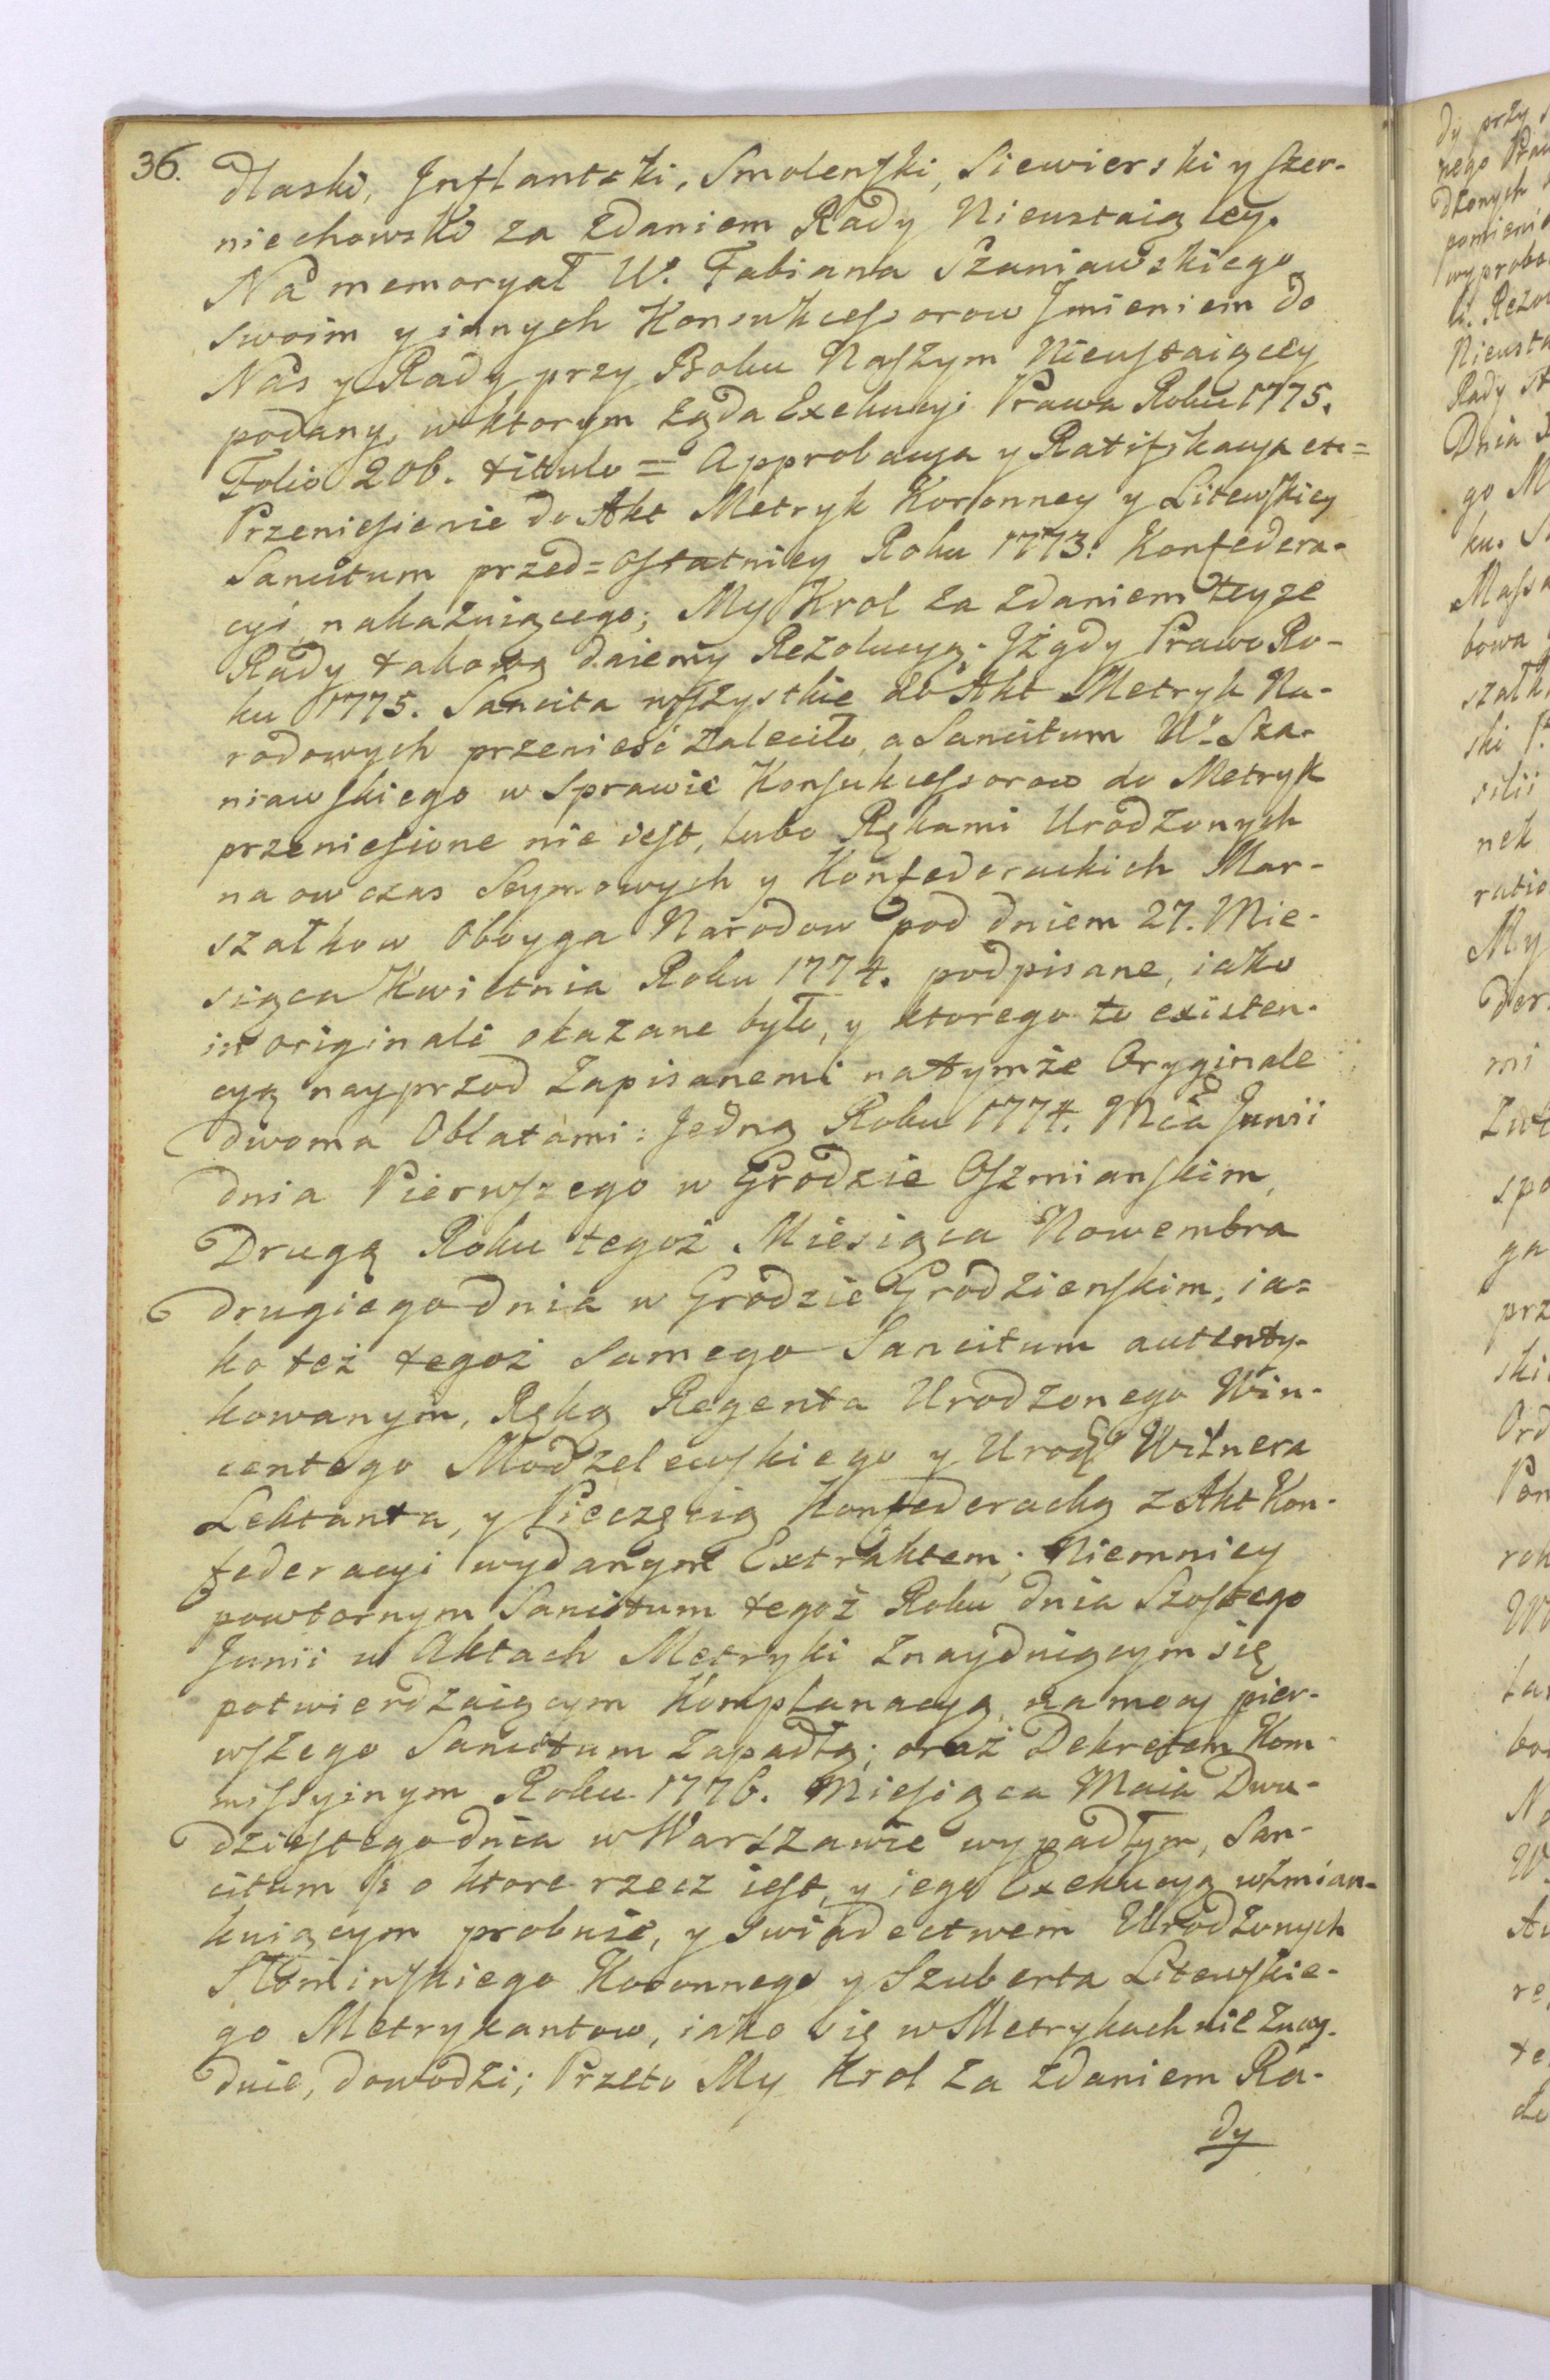 36.
dlaski, Jnflantski, Smolenſki, Siewierski y Czer-
niechowski za zdaniem Rady Nieustaiącey.
Na memoryał W. Fabiana Szaniawskiego
swoim y innych Konsukceſsorow Jmieniem do
Nas y Rady przy Boku Naſzym Nieuſtaiącey
podany, w ktorym żąda Exekucyi Prawa Roku 1775.
Folio 206. titulo = Approbacya y Ratifikacya etc=
Przenieſienie do Akt Metryk Koronney y Litewſkiey
Sancitum przed=oſtatniey Roku 1773. Konfedera-
cyi nakazuiącego; My Krol za zdaniem teyze
Rady takową daiemy Rezolucyą. Jż gdy Prawo Ro-
ku 1775. Sancita wſzystkie do Akt Metryk Na-
rodowych przenieść zaleciło, a Sancitum W. Sza-
niawſkiego w Sprawie Konſukceſsorow do Metryk
przenieſione nie ieſt, lubo Rękami Urodzonych
na ow czas Seymowych y Konfederackich Mar-
szałkow Oboyga Narodow pod dniem 27. Mie-
siąca Kwietnia Roku 1774. podpisane, iako
in originali okazane było, y ktorego to existen-
cyą nayprzod Zapisanemi na tymże Oryginale
dwoma Oblatami: Jedną Roku 1774. Mca Junii
dnia Pierwſzego w Grodzie Oſzmianſkim,
Drugą Roku tegoż Miesiąca Nowembra
drugiego dnia w Grodzie Grodzienſkim, ia=
ko też tegoż samego Sancitum autenty-
kowanym, Ręką Regenta Urodzonego Win-
centego Modzelewſkiego y Urodz Witnera
Lektanta, y Pieczęcią Konfederacką z Akt Kon-
federacyi wydanym Extraktem; Niemniey
powtornym Sancitum tegoż Roku dnia Szoſtego
Junii w Aktach Metryki znayduiącym się
potwierdzaiącym Komplanacyą, na mocy pier-
wſzego Sancitum zapadłą; oraz Dekretem Kom-
miſsyinym Roku 1776. Mieſiąca Maia Dwu-
dzieſtego dnia w Warszawie wypadłym, San-
citum o ktore rzecz ieſt, y iego Exekucyą wzmian-
kuiącym probuie, y świadectwem Urodzonych
Słominſkiego Koronnego y Szuberta Litewſkie-
go Metrykantow, iako się w Metrykach nie znay-
duie, dowodzi; Przeto My Krol za zdaniem Ra-
dy